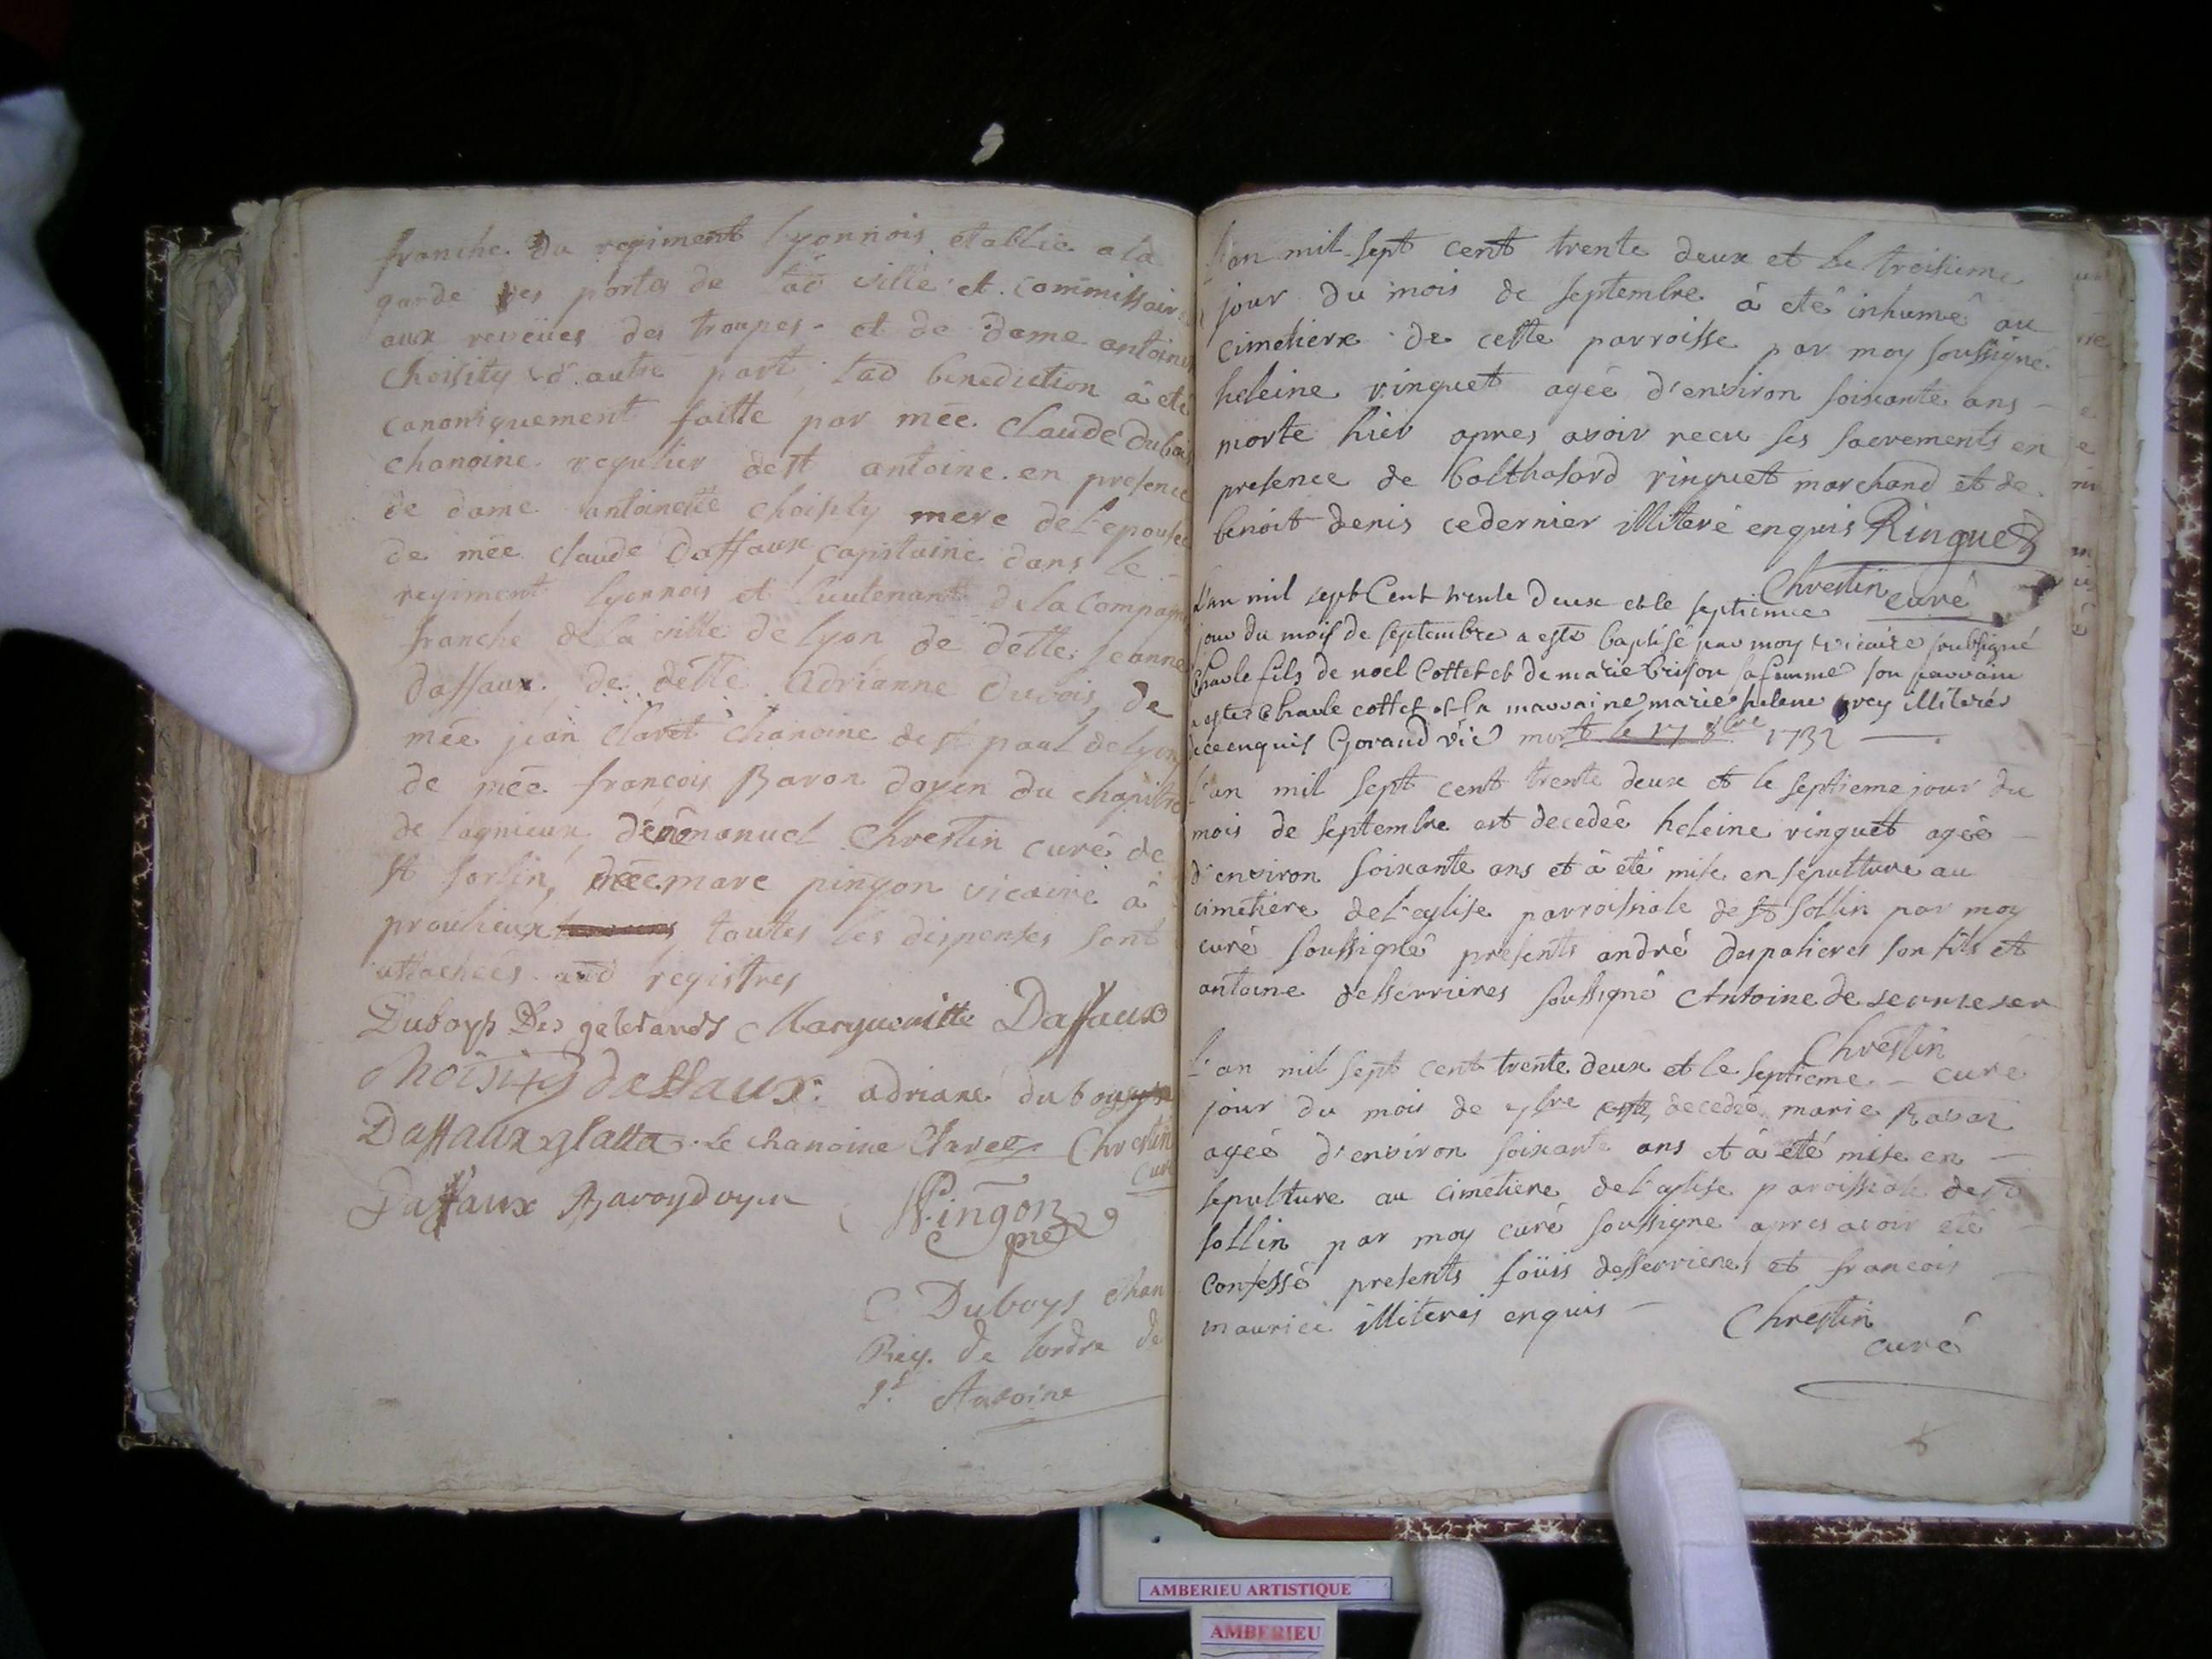 franche du regiment lyonnois etablie a la
garde des portes de lad ville et commissaire
aux reveües des troupes - et de dame antoinet
Choisity d'autre part lad benediction à eté
canoniquement faitte par mée. Claude Dubois
chanoine regulier de st antoine. en presence
de dame antoinette choisity mere de l'epousee
de mée claude Daffaux capitaine dans le
regiment lyonnois et lieutenant de la Compagn
franche de la ville de lyon de delle. jeanne
daffaux. de delle. Adrianne Dubois, de
mée jean Claret chanoine de st paul de lyon
de mée françois Baron doyen du chapitre
de lagnieux, d'emanuel Chrestin curé de
st sorlin, mée marc pingon vicaire à
proulieux toutes les dispenses sont
attachées aud registres
Duboys Des gelerands Marguenitte Daffaux
Choisity daffaux. adriane duboys
Daffaux glatta. Le chanoine Claret Chrestin
curé
Daffaux Baron doyen Pingon
pre
C. Duboys chan
Reg. de lordre de
St. Antoine
l'an mil sept cent trente deux et le troisieme
jour du mois de septembre à eté inhumé au
cimetiere de cette parroisse par moy soussigné
heleine ringuet agée d'environ soixante ans -
morte hier apres avoir recu ses sacrements en
presence de balthasard ringuet marchand et de
benoit denis ce dernier illiteré enquis Ringuet
Chrestin curé
L'an mil sept Cent trente deux et le septieme
jour du mois de septembre a esté baptisé par moy vicaire soubsigné
Charle fils de noel Cottet et de marie brison sa femme son parrain
a esté Charle cottet et la marraine marie helene prey illiterés
de ce enquis Goraud vic mort le 17 8bre 1732
L'an mil sept cent trente deux et le septieme jour du
mois de septembre est decedée heleine ringuet agée -
d'environ soixante ans et à eté mise en sepulture au
cimetiere de l'eglise parroissiale de st sollin par moy
curé soussigné presents andré despalieres son fils et
antoine desserrieres soussigné Antoine de
Chrestin
l'an mil sept cent trente deux et le septieme - curé
jour du mois de 7bre est decedée marie Ravat
agée d'environ soixante ans et à eté mise en -
sepulture au cimetiere de l'eglise paroissiale de st
sollin par moy curé soussigné apres avoir eté
confessé presents loüis desserrieres et francois
maurice illiterés enquis - Chrestin
curé
AMBERIEU ARTISTIQUE
AMBERIEU